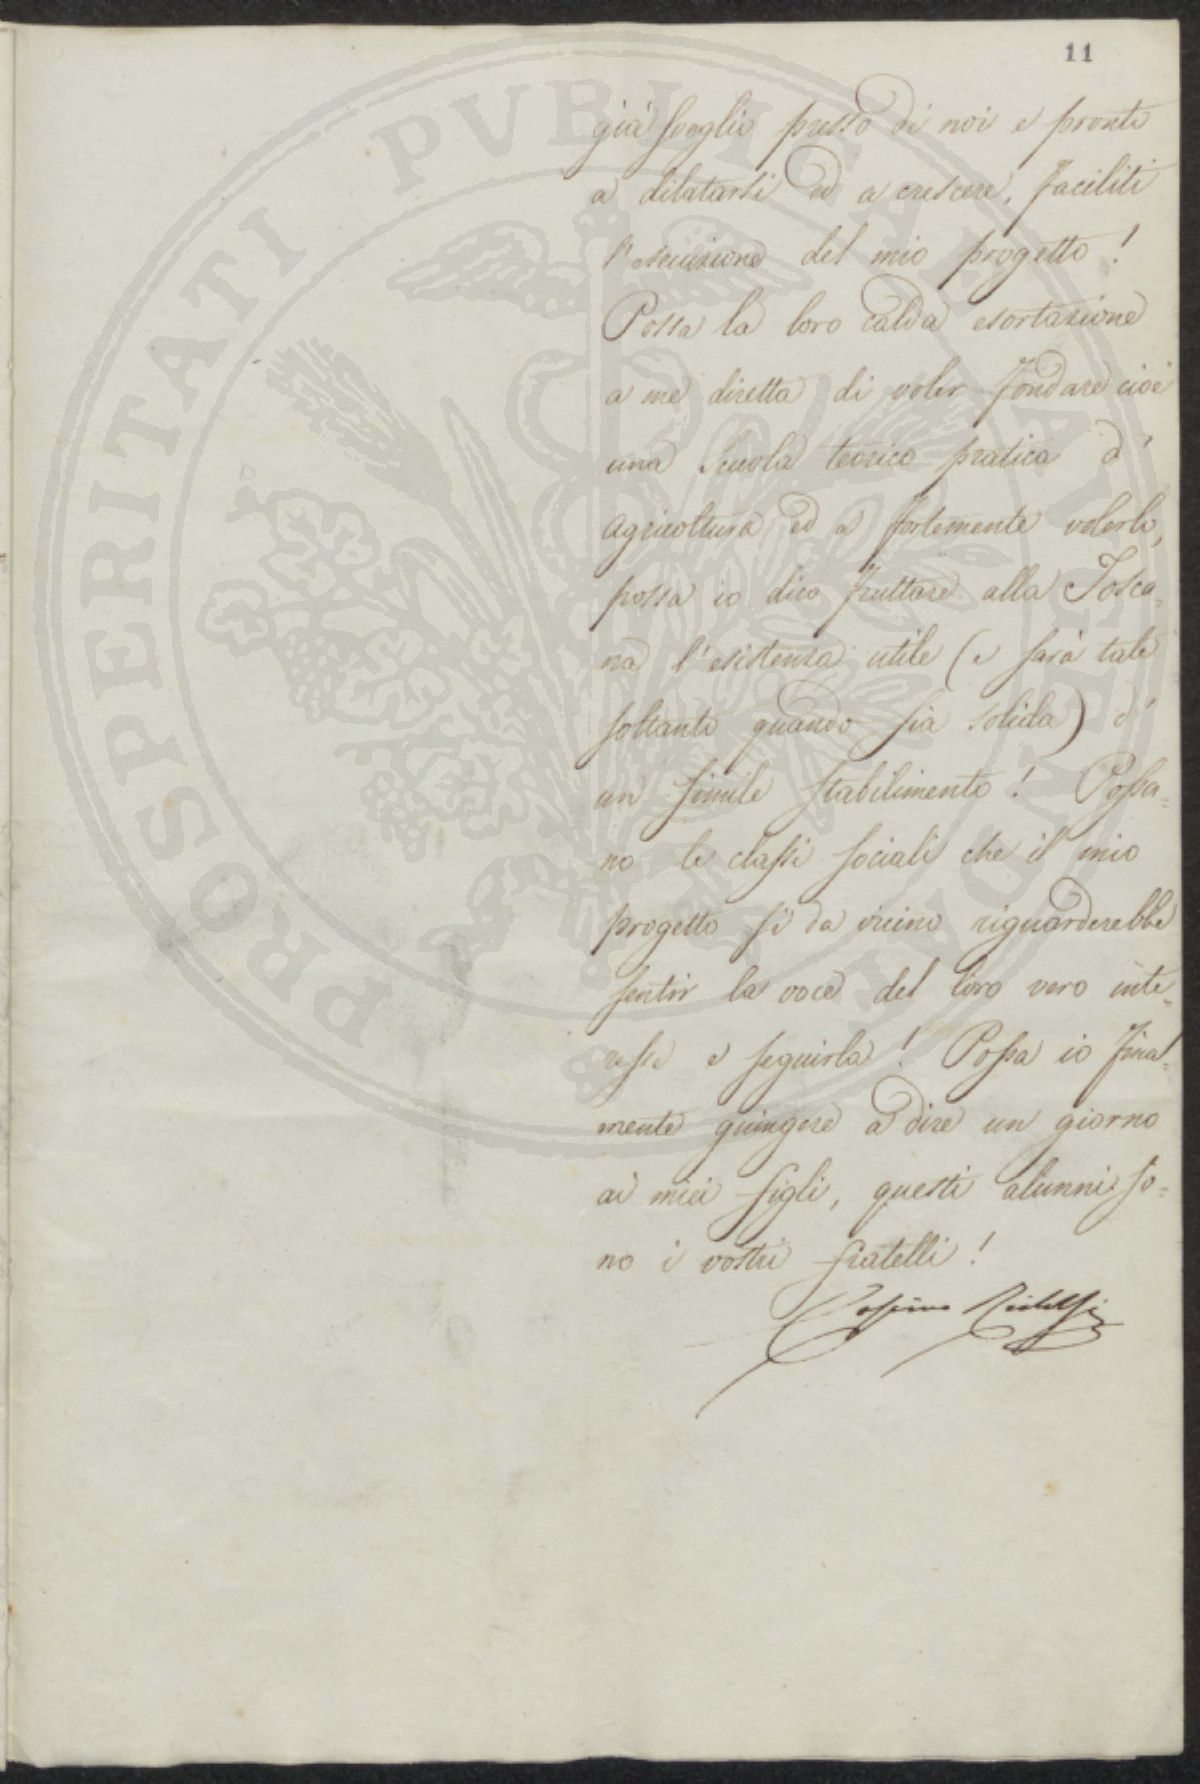 11
già sveglio presso di noi e pronto
a dilatarsi ed a crescere, faciliti
l'esecuzione del mio progetto!
Possa la loro calda esortazione
a me diretta di voler fondare cioè
una Scuola teorico pratica d'
agricoltura ed a fortemente volerlo,
possa io dico fruttare alla Tosca=
na l'esistenza utile (e sarà tale
soltanto quando sia solida) d'
un simile stabilimento! Possa=
no le classi sociali che il mio
progetto sì da vicino riguarderebbe
sentir la voce del loro vero inte=
resse e seguirla! Possa io final=
mente giungere a dire un giorno
ai miei figli, questi alunni so=
no i vostri fratelli!
Cosimo Ridolfi
PROSPERITATI PUBLICAE AUGENDAE